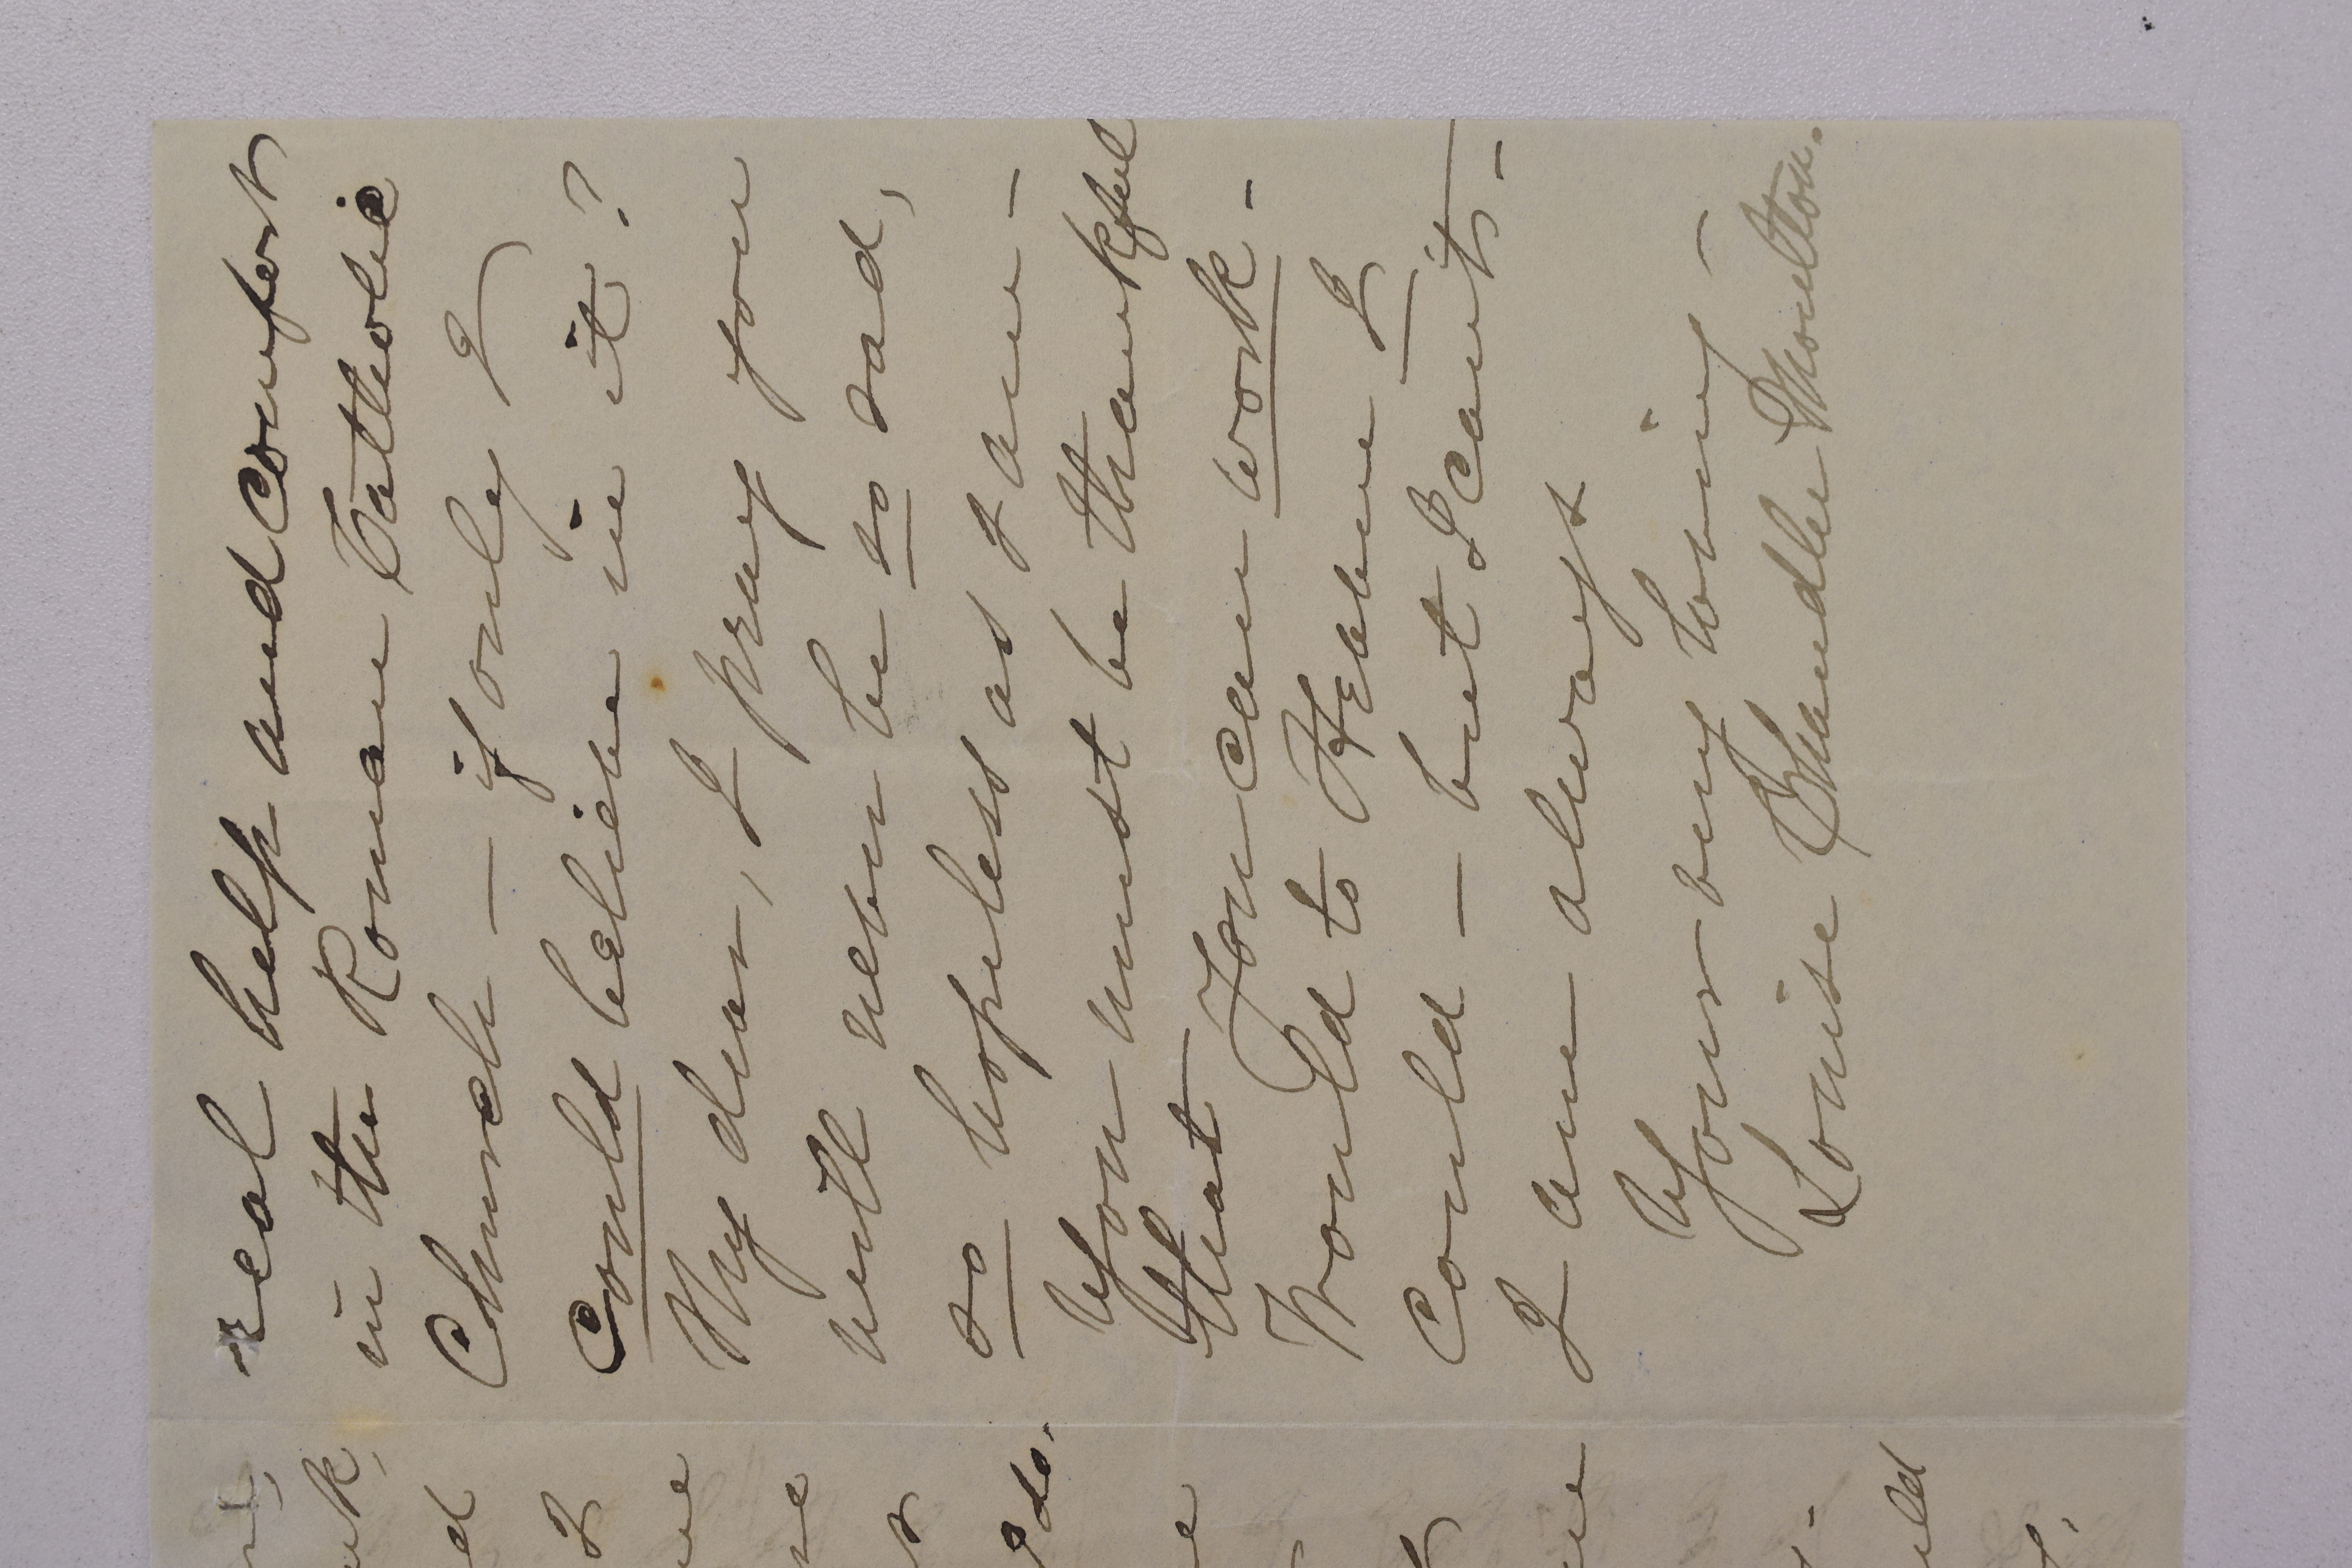 real help and comfort
in the Roman Catholic
Church — if only I
could believe in it?
My dear, I pray you
will never be so sad,
so hopeless as I am –
You must be thankful
that you can work –
Would to Heaven I
could – but I can't –
I am always
Your very loving –
Louise Chandler Moulton.
do.